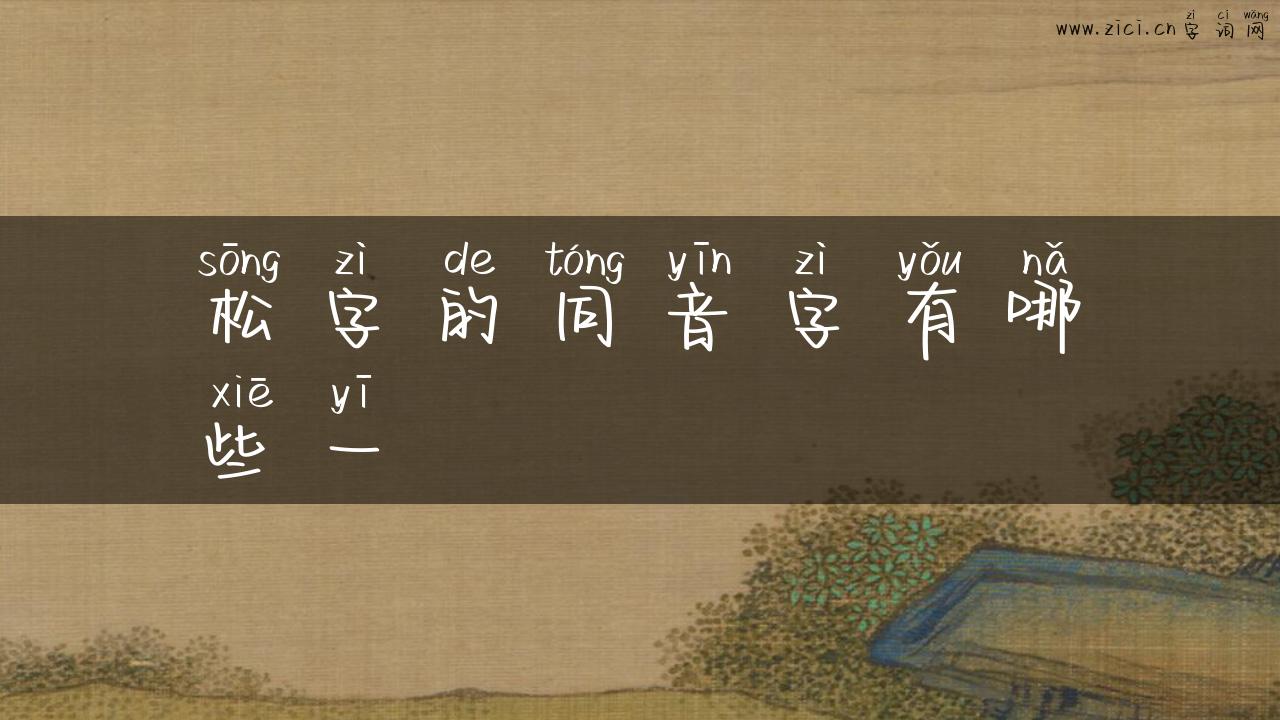 zì cí wǎng
www.zici.cn字词网
sōng zì de tóng yīn zì yǒu nǎ
松字的同音字有哪
xiē yī
些一